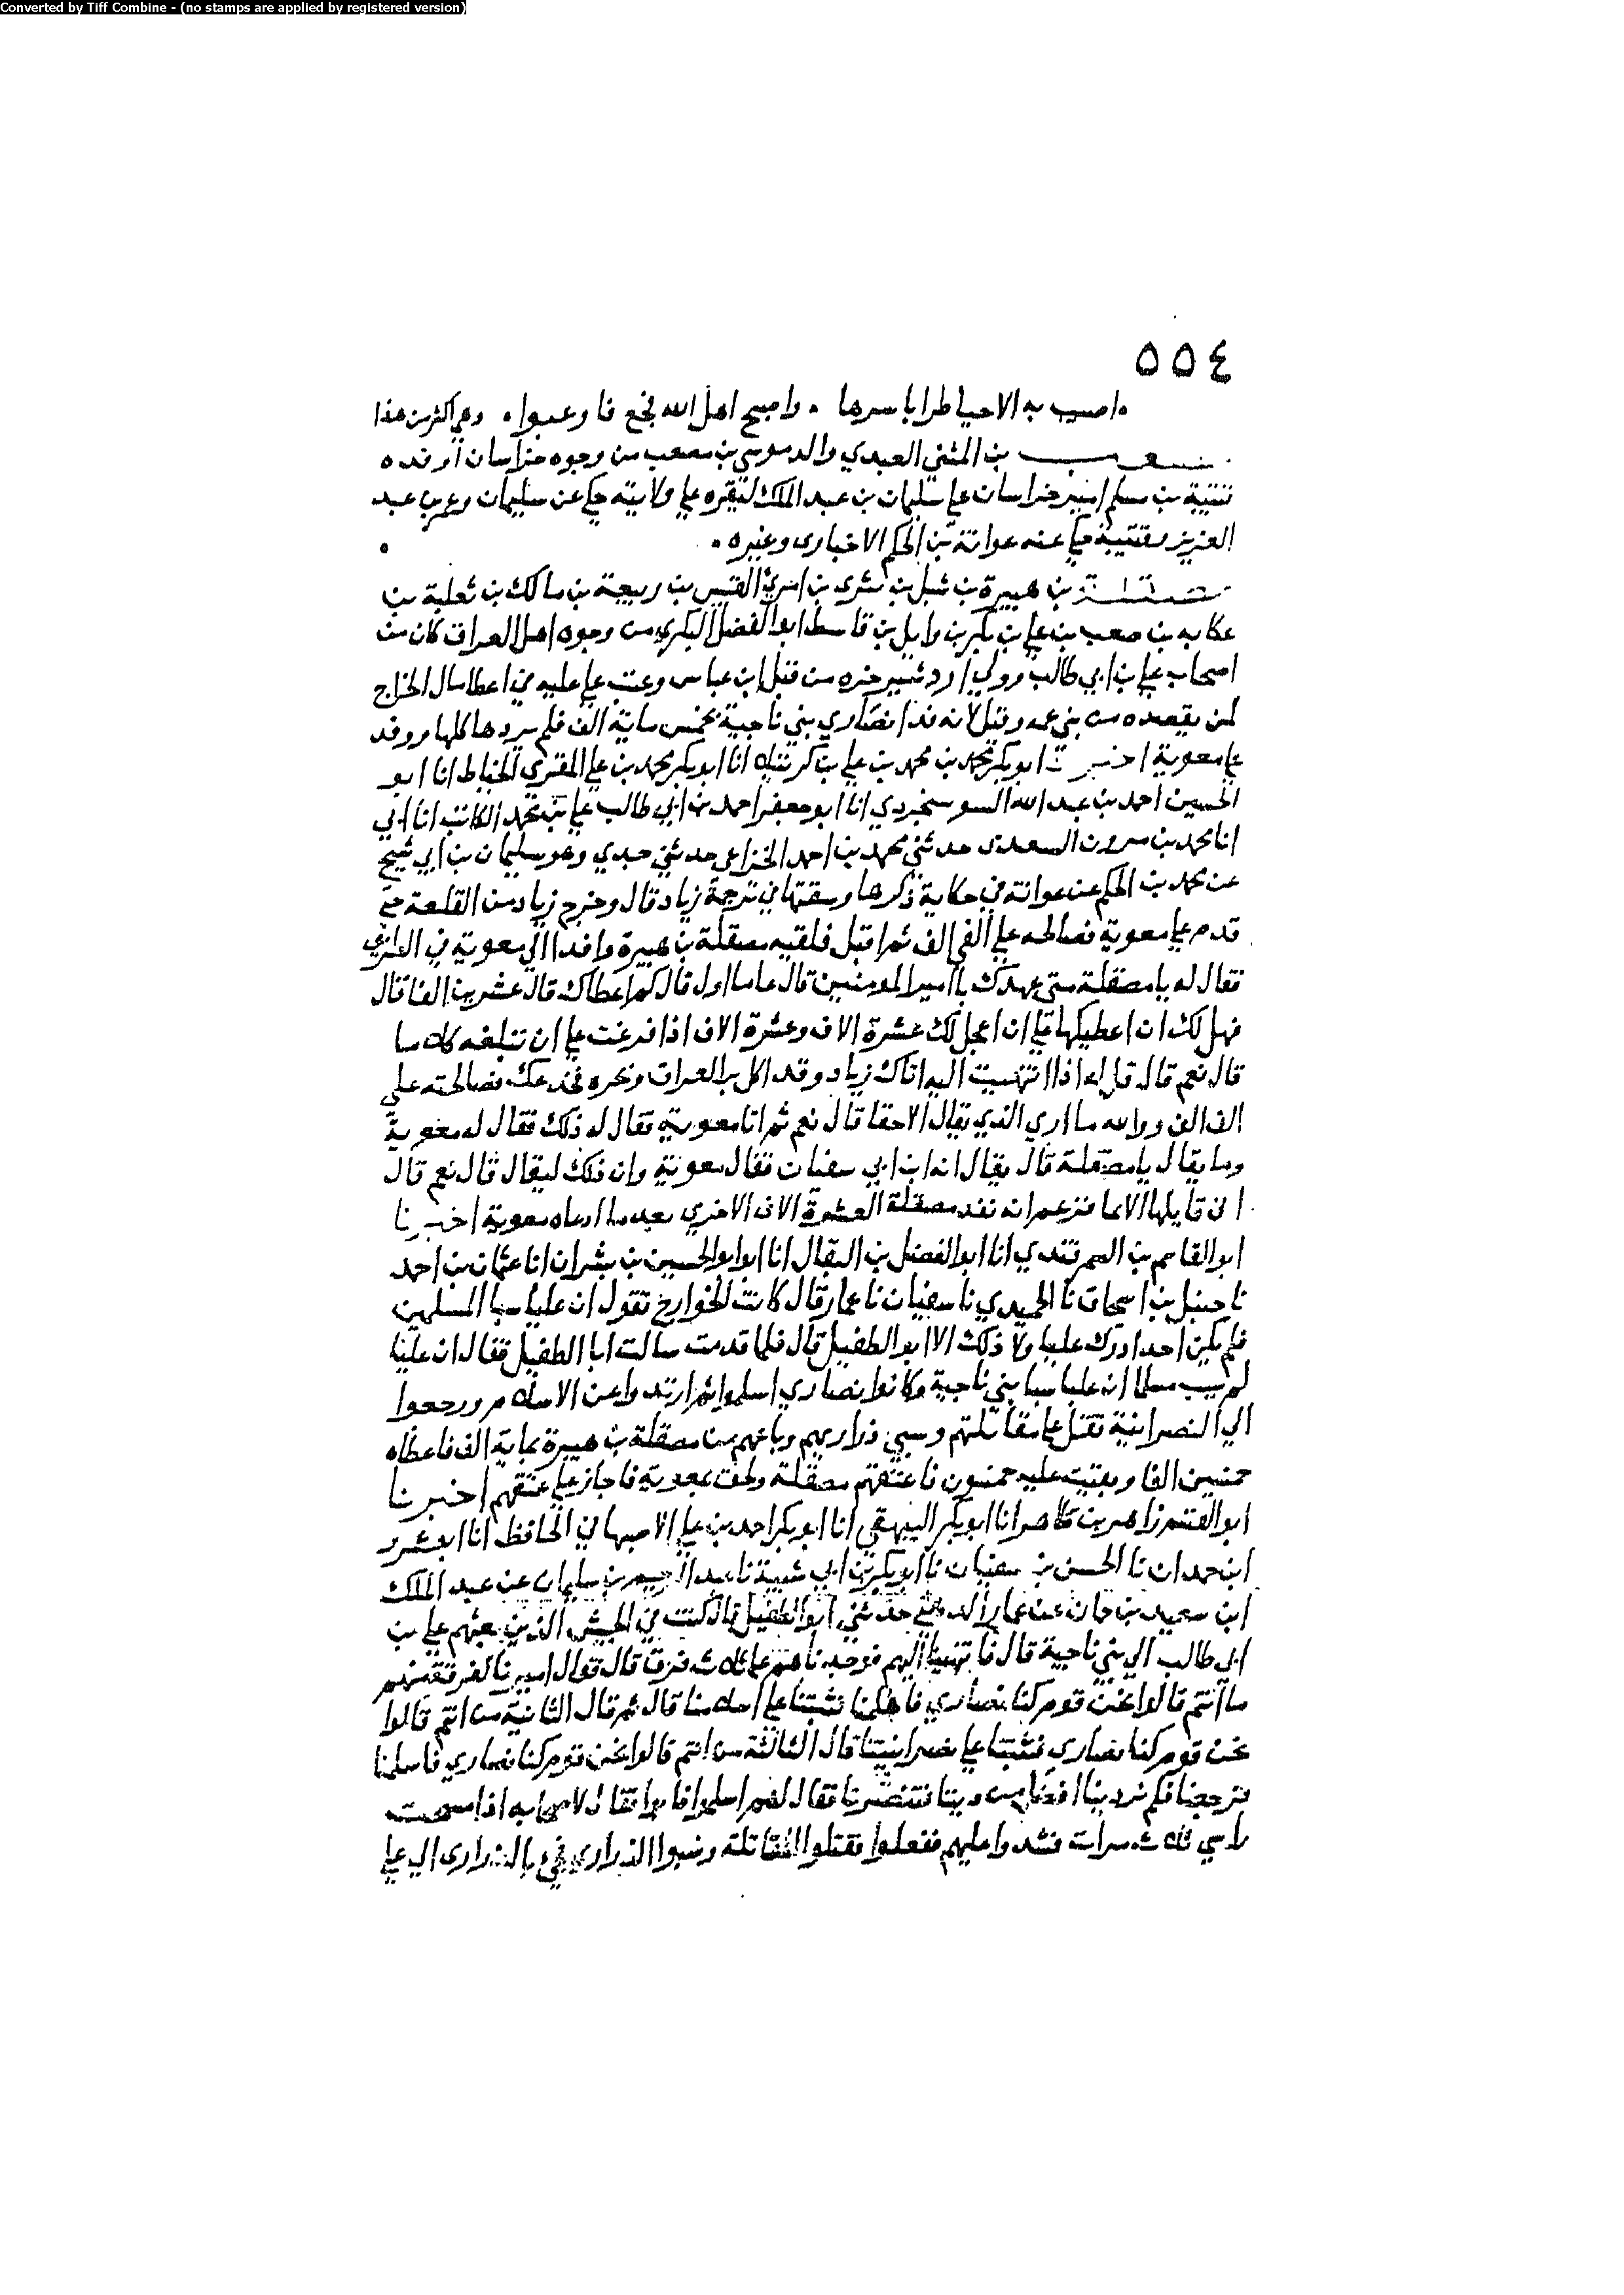 Converted by Tiff Combine - (no stamps are applied by registered version)
٥٥٤
اصيب به الاحيا طرا باسرها . واصبح اهل الله نجع فاوعبوا . وهي اكثر من هذا
مصعب بن المثني العبدي والد موسي بن مصعب من وجوه خراسان اوفده
قتيبة بن مسلم امير خراسان علي سليمان بن عبد الملك ليقره علي ولايته حكي عن سليمان وعمر بن عبد
العزيز وقتيبة حكي عنه عوانة بن الحكم الاخباري وغيره .
مصقلة بن هبيرة بن شبل بن يثري بن امري القيس بن ربيعة بن مالك بن ثعلبة بن
عكابه بن صعب بن علي بن بكر بن وايل بن قاسط ابو الفضل البكري من وجوه اهل العراق كان من
اصحاب علي بن ابي طالب وولي اردشير خره من قبل ابن عباس وعتب علي عليه في اعطا مال الخراج
لمن يقصده من بني عمه وقيل لانه فدا نصاري بني ناجية بخمس ماية الف فلم يردها كلها ووفد
علي معوية اخبرنا ابو بكر محمد بن محمد بن علي بن كرتيلا انا ابو بكر محمد بن علي المقري الخياط انا ابو
الحسين احمد بن عبد الله السوسنجردي انا ابو جعفر احمد بن ابي طالب علي بن محمد الكاتب انا ابي
انا محمد بن مرون السعدي حدثني محمد بن احمد الخزاعي حدثني جدي وهو سليمان بن ابي شيخ
عن محمد بن الحكم عن عوانة في حكاية ذكرها وسقتها في ترجمة زياد قال وخرج زياد من القلعة حتي
قدم علي معوية فصالحه علي الفي الف ثم اقبل فلقيه مصقلة بن هبيرة وافدا الي معوية في الطريق
فقال له يا مصقلة متي عهدك با امير المومنين قال عاما اول قال كم اعطاك قال عشرين الفا قال
فهل لك ان اعطيكها علي ان اعجل لك عشرة الاف وعشرة الاف اذا فرغت علي ان تبلغه كلاما
قال نعم قال قل له اذا انتهيت اليه اتاك زياد وقد اكل بر العراق وبحره فخدعك فصالحته علي
الف الف ووالله ما اري الذي يقال الا حقا قال نعم ثم اتا معوية فقال له ذلك فقال له معوية
وما يقال يا مصقلة قال يقال انه ابن ابي سفيان فقال معوية وان ذلك ليقال قال نعم قال
ان قايلها الاثما فزعم انه نفد مصقلة العشرة الاف الاخري بعد ما ادعاه معوية اخبرنا
ابو القاسم بن السمرقندي انا ابو الفضل بن البقال انا ابو ابو الحسين بن بشران انا عثمان بن احمد
نا حنبل بن اسحاق نا الحميدي نا سفيان نا عمار قال كانت الخوارج تقول ان عليا سبا المسلمين
فلم يكن احد ادرك عليا ولا ذلك الا ابو الطفيل قال فلما قدمت سالت ابا الطفيل فقال ان عليا
لم يسب مسلما ان عليا سبا بني ناجية وكانوا نصاري اسلموا ثم ارتدوا عن الاسلام ورجعوا
الي النصرانية فقتل علي مقاتلتهم وسبي ذراريهم وباعهم من مصقلة بن هبيرة بماية الف فاعطاه
خمسين الفا وبقيت عليه خمسون فاعتقهم مصقلة ولحق بمعوية فاجاز علي عتقهم اخبرنا
ابو القسم زاهر بن طاهر انا ابو بكر البيهقي انا ابو بكر احمد بن علي الاصبهاني الحافظ انا ابو عمرو
ابن حمدان نا الحسن بن سفيان نا ابو بكر بن ابي شيبة نا عبد الرحيم بن سليمان عن عبد الملك
ابن سعيد بن حان عن عمار الدهني حدثني ابو الطفيل قال كنت في الجيش الذين بعثهم علي بن
ابي طالب الي بني ناجية قال فانتهينا اليهم فوجدناهم علي ثلاث فرق قال فقال اميرنا لفرقة منهم
ما انتم قالوا نحن قوم كنا نصاري فاسلمنا فثبتنا علي اسلامنا قال ثم قال الثانية من انتم قالوا
نحن قوم كنا نصاري فثبتنا علي نصرانيتنا قال الثالثة من انتم قالوا نحن قوم كنا نصاري فاسلمنا
فرجعنا فلم نر دينا افضل من ديننا فتنصرنا فقال لهم اسلموا فابوا فقال لاصحابه اذا مسحت
راسي ثلاث مرات فشدوا عليهم ففعلوا فقتلوا المقاتلة وسبوا الذراري فجي بالذراري الي علي